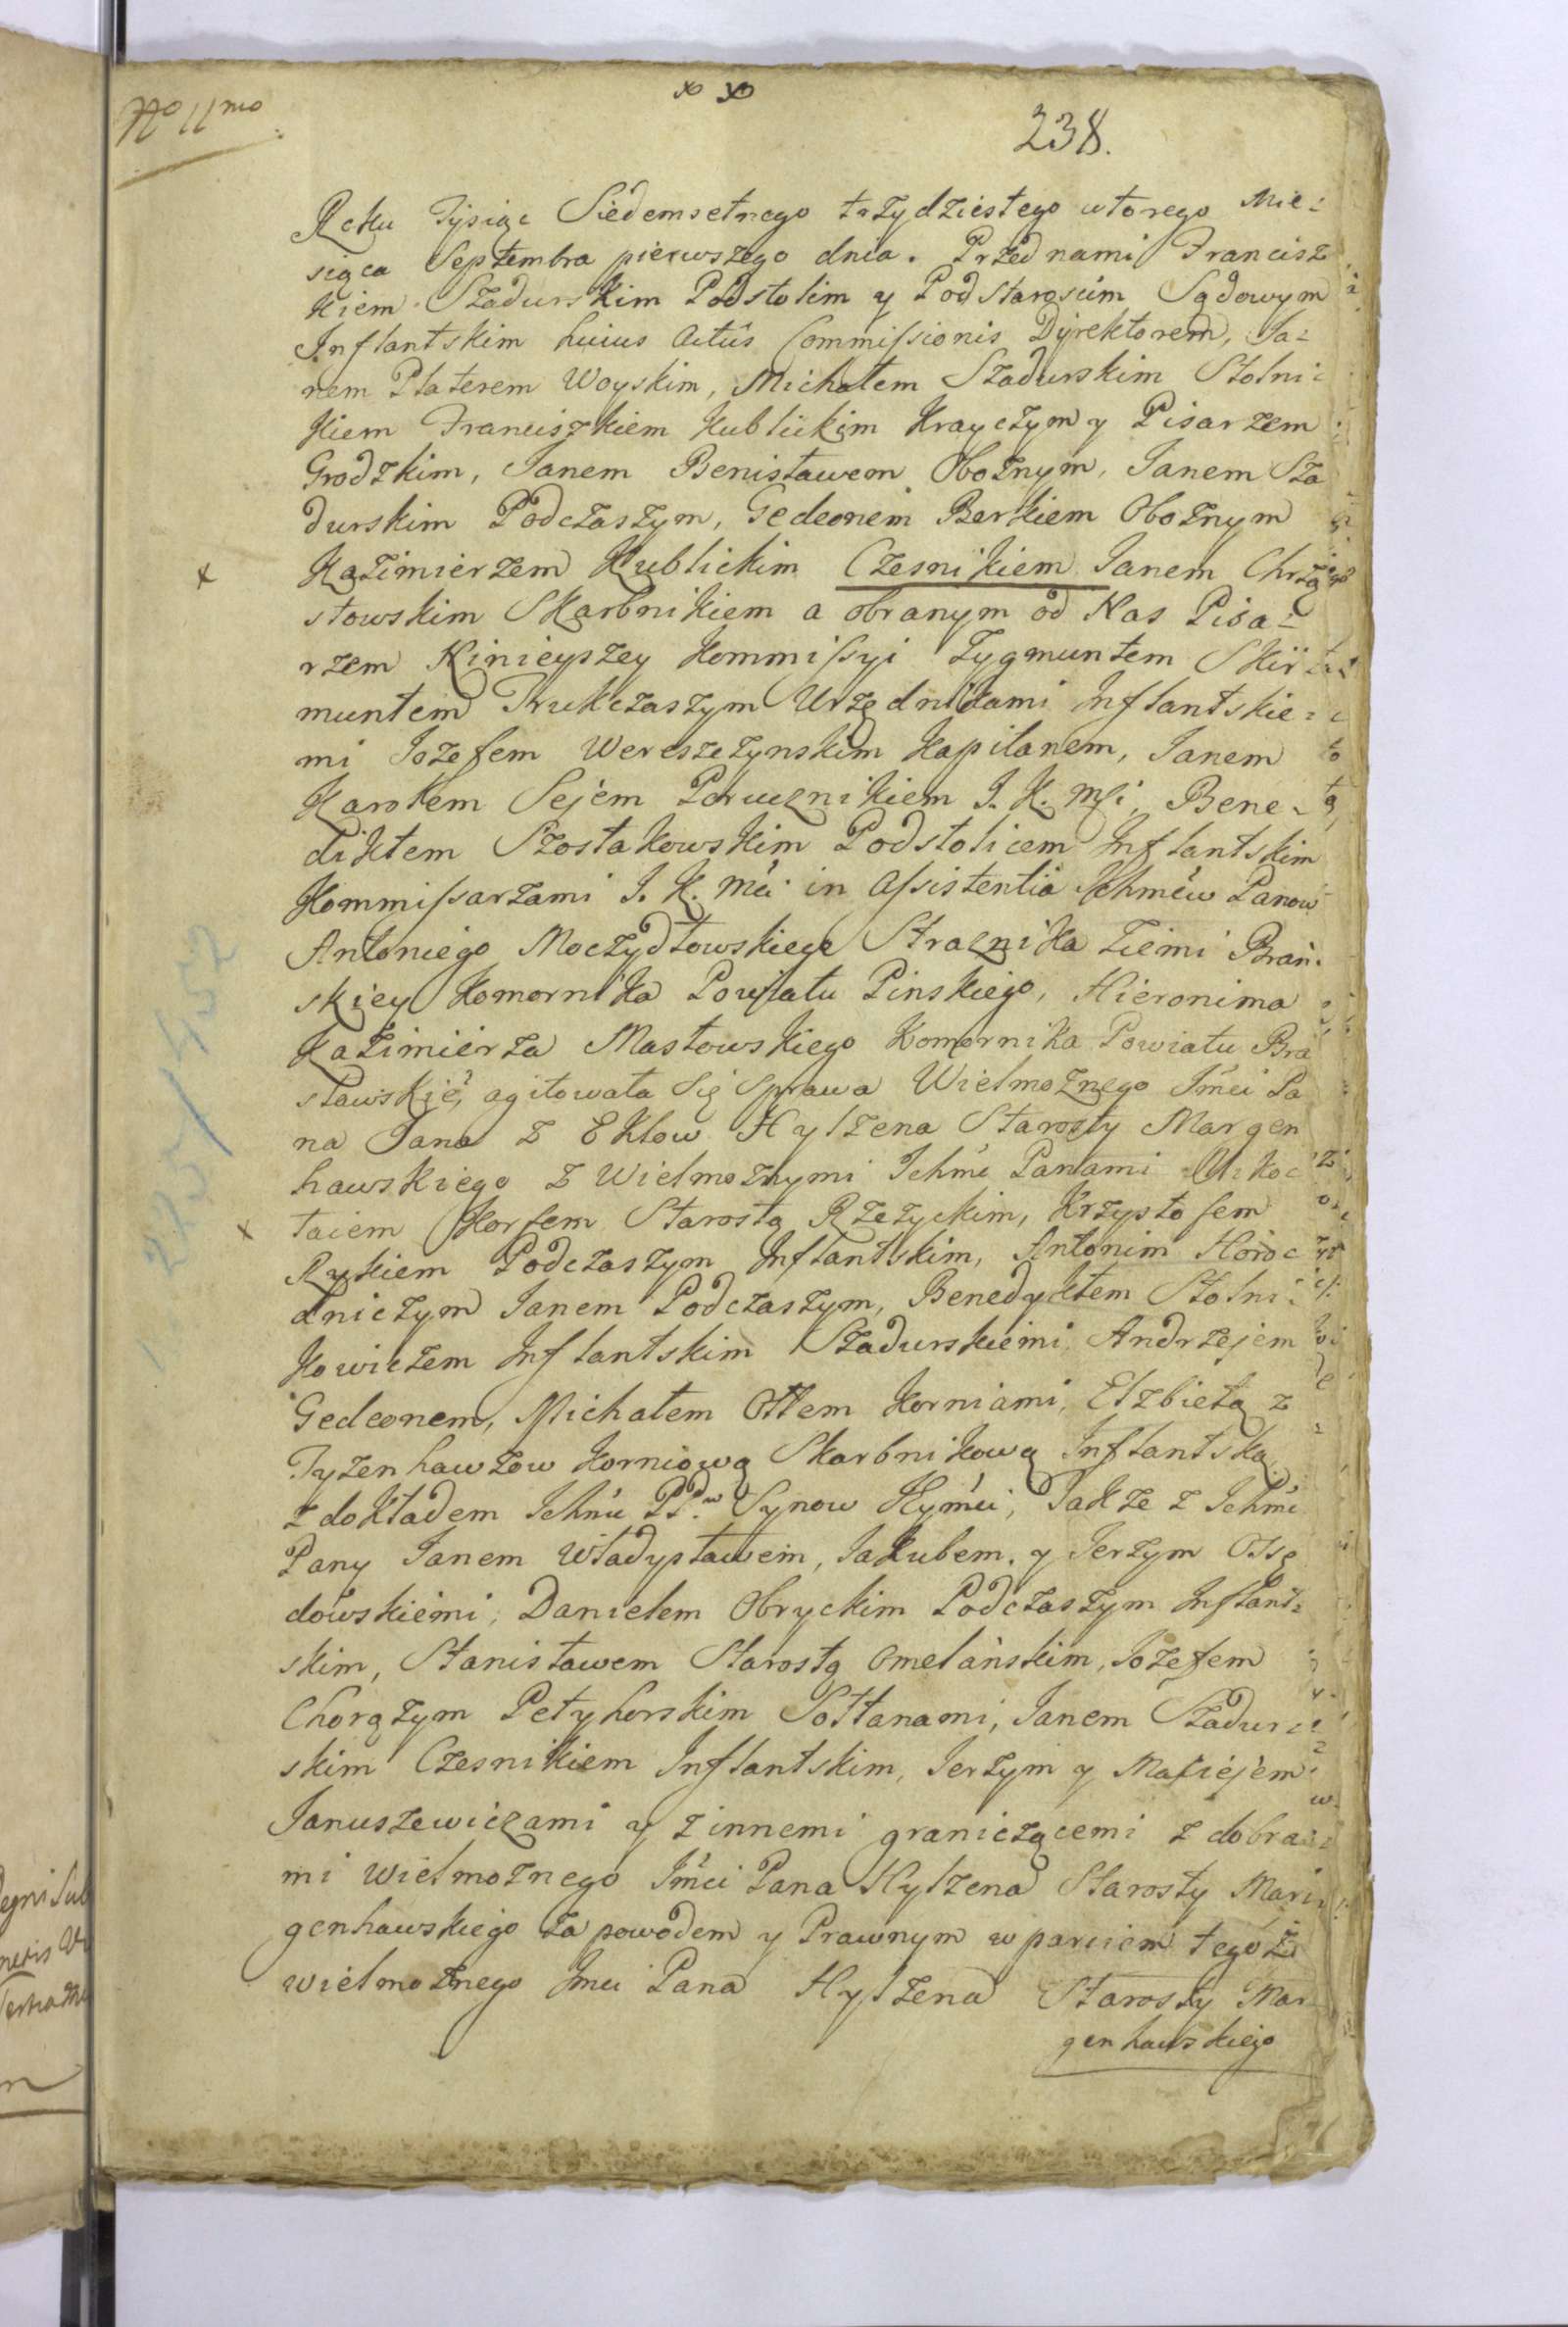 No 11mo
238.
Roku Tysiąc Siedemsetnego trzydziestego wtorego Mie=
siąca Septembra pierwszego dnia. Przed nami Francisz
kiem Szadurskim Podstolim y Podstaroscim Sądowym
Inflantskim huius actûs Commissionis Dyrektorem, Ja=
nem Platerem Woyskim, Michałem Szadurskim Stolni=
kiem Franciszkiem Kublickim Krayczym y Pisarzem
Grodzkim, Janem Benisławem Oboznym, Janem Sza
durskim Podczaszym, Gedeonem Berkiem Oboznym
Kazimierzem Kublickim Czesnikiem Janem Chrzą
stowskim Skarbnikiem a obranym od Nas Pisa=
rzem Ninieyszey Kommissyi Zygmuntem Skir
muntem Trukczaszym Urzędnikami Inflantskie=
mi Jozefem Wereszczynskim Kapitanem, Janem
Karolem Sejem Porucznikiem J. K. Mci, Bene=
diktem Szostakowskim Podstolicem Inflantskim
Kommissarzami J. K. Mci in Assistentia Ichmciow Panow
Antoniego Moczydłowskiego Straznika Ziemi Brań=
skiey Komornika Powiatu Pinskiego, Hieronima
Kazimierza Masłowskiego Komornika Powiatu Bra
sławskie, agitowała się Sprawa Wielmoznego Jmci Pa
na Jana z Ekłow Hylzena Starosty Margen
hawskiego z Wielmoznymi Ichmc Panami Mikoł
taiem Korfem Starostą Rzezyckim, Krzysztofem
Rykiem Podczaszym Inflantskim, Antonim Horod
dniczym Janem Podczaszym, Benedyktem Stolni=
kowiczem Inflantskim Szadurskiemi, Andrzejem
Gedeonem, Michałem Ottem Korniami, Elzbietą z
Tyzenhawzow Korniową Skarbnikową Inflantską
z dokładem Ichmc PP.w Synow Jeymci, Takze z Ichmc
Pany Janem Władysławem, Jakubem, y Jerzym Osse
dowskiemi, Danielem Obryckim Podczaszym Inflant=
skim, Stanisławem Starostą Omelańskim, Jozefem
Chorązym Petyhorskim Sołtanami, Janem Szadur=
skim Czesnikiem Inflantskim, Jerzym y Maciejem
Januszewiczami y z innemi graniczącemi z dobra=
mi Wielmoznego Jmci Pana Hylzena Starosty Mar=
genhawskiego za powodem y Prawnym wparciem tegoż
wielmoznego Jmci Pana Hylzena Starosty Mar
genhawskiego